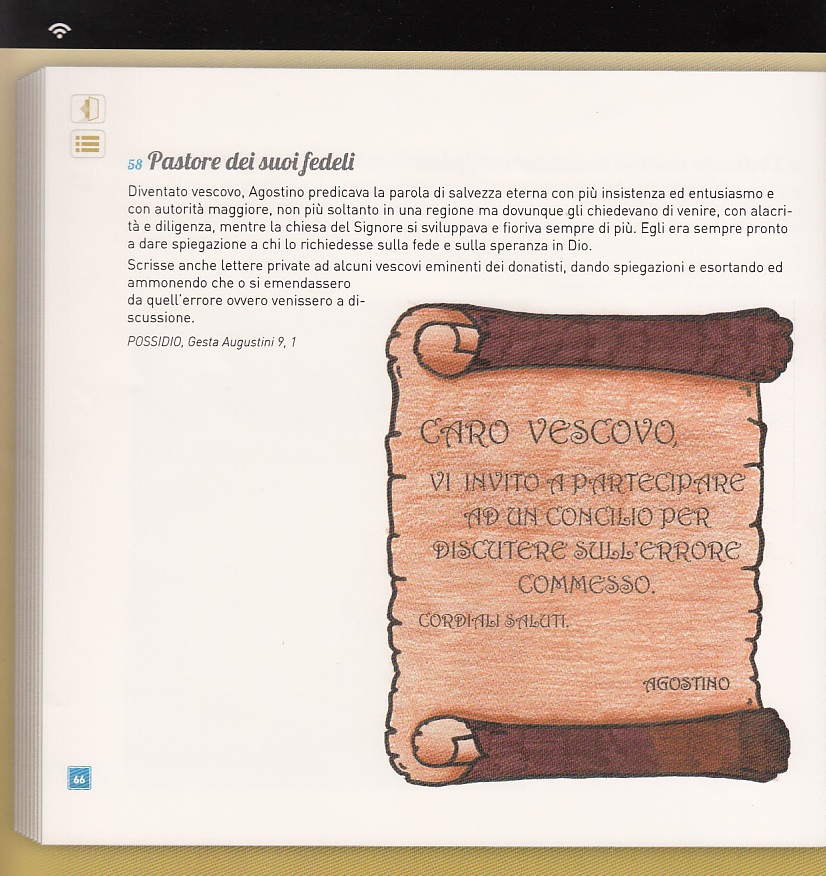 58 Pastore dei suoi fedeli
Diventato vescovo, Agostino predicava la parola di salvezza eterna con più insistenza ed entusiasmo e
con autorità maggiore, non più soltanto in una regione ma dovunque gli chiedevano di venire, con alacri-
tà e diligenza, mentre la chiesa del Signore si sviluppava e fioriva sempre di più. Egli era sempre pronto
a dare spiegazione a chi lo richiedesse sulla fede e sulla speranza in Dio.
Scrisse anche lettere private ad alcuni vescovi eminenti dei donatisti, dando spiegazioni e esortando ed
ammonendo che o si emendassero
da quell'errore ovvero venissero a di-
scussione.
POSSIDIO, Gesta Augustini 9, 1
CARO VESCOVO,
VI INVITO A PARTECIPARE
AD UN CONCILIO PER
DISCUTERE SULL'ERRORE
COMMESSO.
CORDIALI SALUTI.
AGOSTINO
66